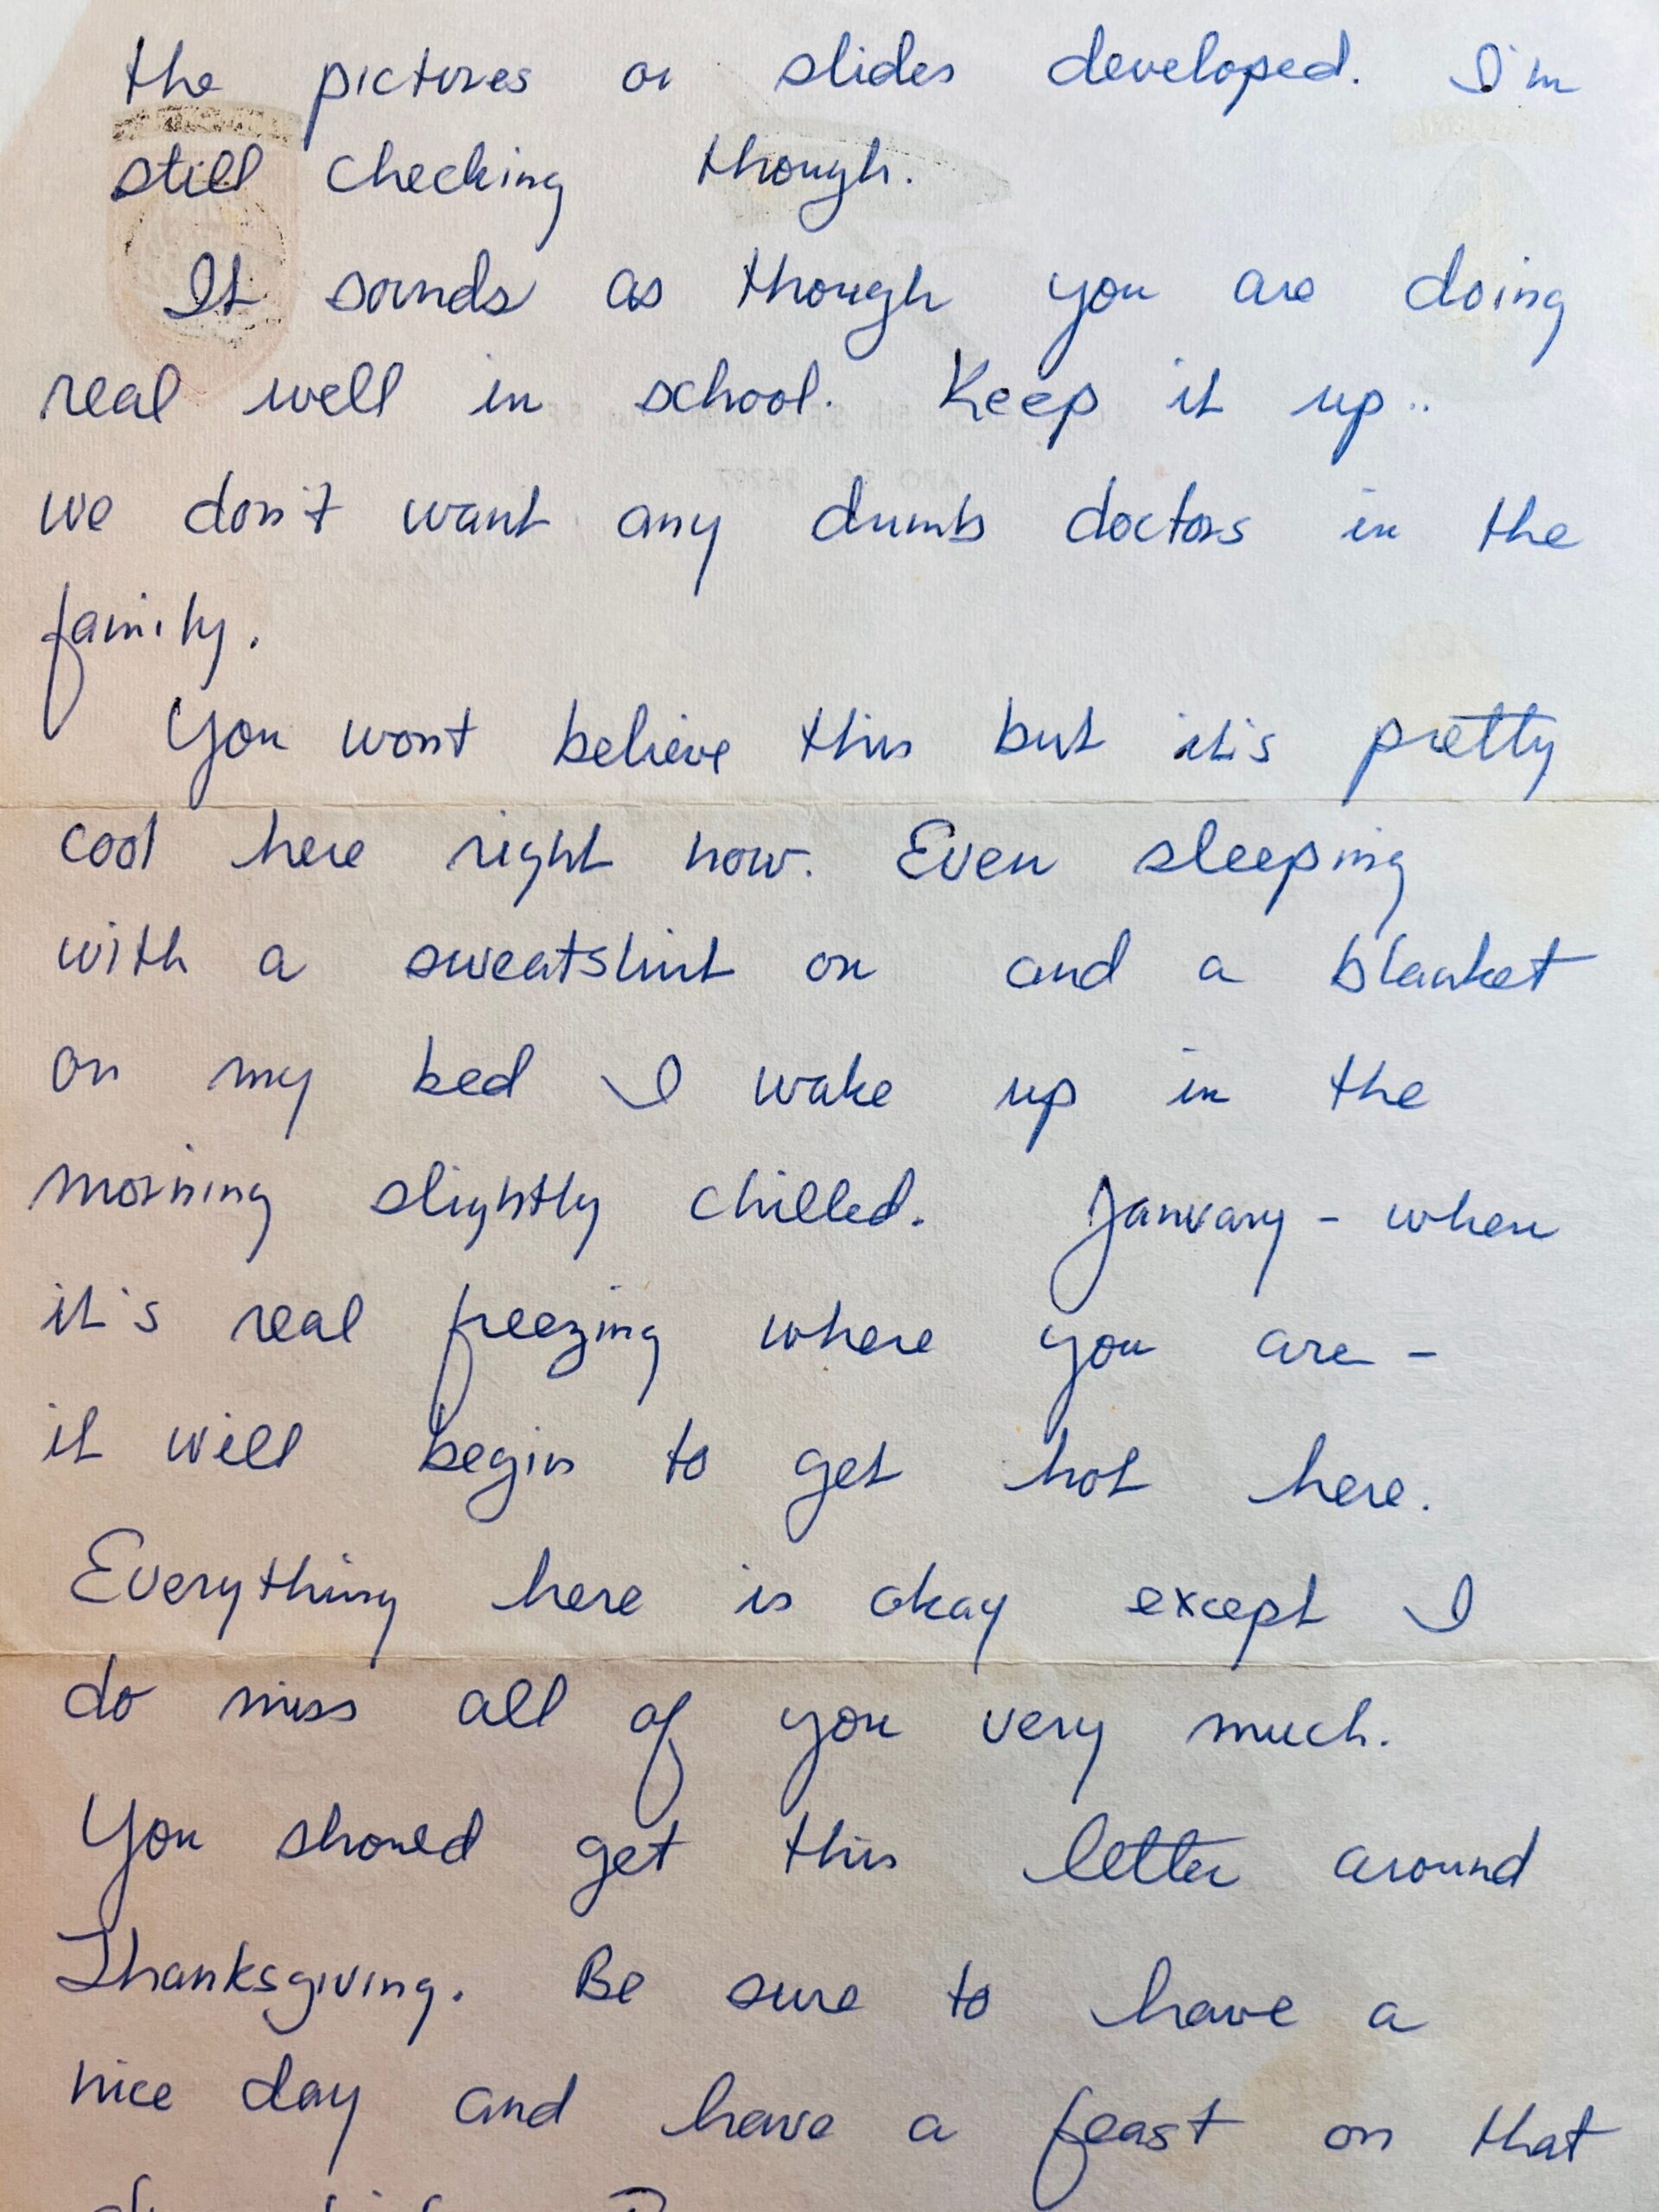 the pictures or slides developed. I'm
still checking though.
It sounds as though you are doing
real well in school. Keep it up..
we don't want any dumb doctors in the
family.
You won't believe this but it's pretty
cool here right now. Even sleeping
with a sweatshirt on and a blanket
on my bed I wake up in the
morning slightly chilled. January - when
it's real freezing where you are -
it will begin to get hot here.
Everything here is okay except I
do miss all of you very much.
You should get this letter around
Thanksgiving. Be sure to have a
nice day and have a feast on that